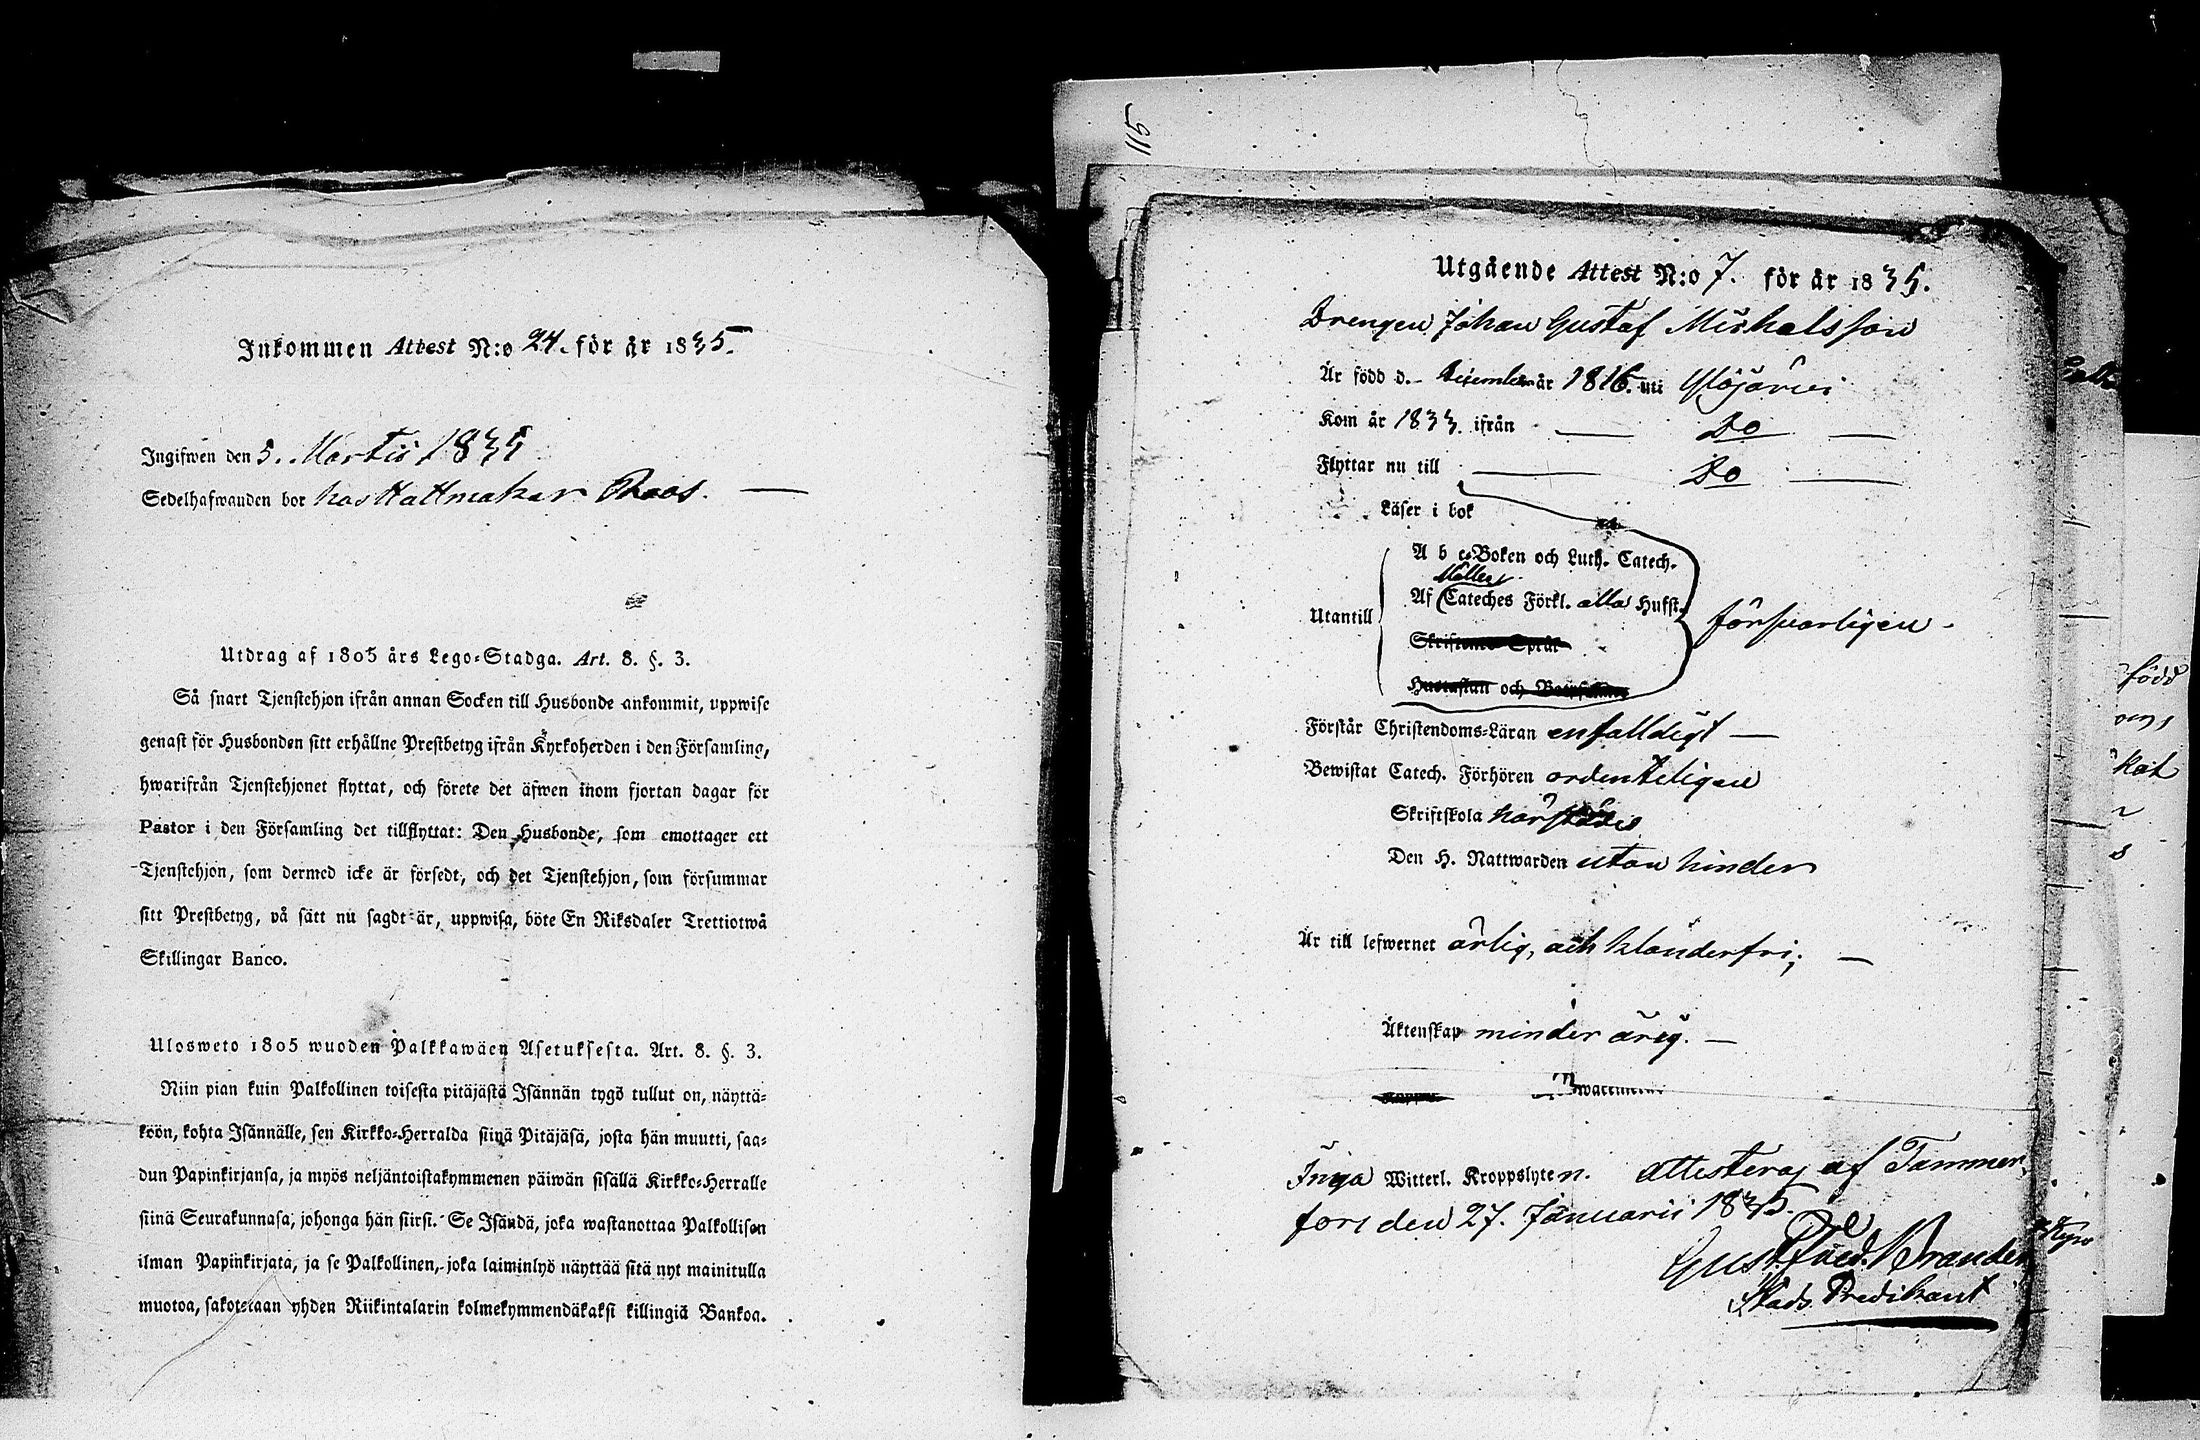 Inkommen Attest N:o 24. för år 1835.
Ingifwen den 5. Martii 1835
Sedelhafwanden bor hos Hattmakar Roos. —
Utdrag af 1805 års Lego-Stadga. Art. 8. §. 3.
Så snart Tjenstehjon ifrån annan Socken till Husbonde ankommit, uppwise
genast för Husbonden sitt erhållne Prestbetyg ifrån Kyrkoherden i den Församling,
hwarifrån Tjenstehjonet flyttat, och förete det äfwen inom fjortan dagar för
Pastor i den Församling det tillflyttat: Den Husbonde, som emottager ett
Tjenstehjon, som dermed icke är försedt, och det Tjenstehjon, som försummar
sitt Prestbetyg, på sätt nu sagdt är, uppwisa, böte En Riksdaler Trettiotwå
Skillingar Banco.
Ulosweto 1805 wuoden Palkkawäen Asetuksesta. Art. 8. §. 3.
Niin pian kuin Palkollinen toisesta pitäjästä Isännän tygö tullut on, näyttä-
köön, kohta Isännälle, sen Kirkko-Herralda siinä Pitäjäsä, josta hän muutti, saa-
dun Papinkirjansa, ja myös neljäntoistakymmenen päiwän sisällä Kirkko-Herralle
siinä Seurakunnasa, johonga hän siirsi. Se Isändä, joka wastanottaa Palkollisen
ilman Papinkirjata, ja se Palkollinen, joka laiminlyö näyttää sitä nyt mainitulla
muotoa, sakotetaan yhden Riikintalarin kolmekymmendäkaksi killingiä Bankoa.
115
Utgående Attest N:o 7. för år 1835.
Drengen Johan Gustaf Michelsson
Är född d. – December år 1816. uti Ylöjärvi
Kom år 1833. ifrån — Do —
Flyttar nu till — Do —
Läser i bok
A b c-Boken och Luth. Catech.
Möllers
Af Cateches Förkl. alla Hufst.
Utantill försvarligen –
Skriftenes Språk
Hustaflan och
Förstår Christendoms-Läran enfalldigt —
Bewistat Catech. Förhören ordenteligen
Skriftskola härstädes
Den H. Nattwarden utan hinder
Är till lefwernet ärlig, och klanderfri; —
Äktenskap minder årig. —
Koppor
Inga Witterl. Kroppslyten. Attesteras af Tammer-
fors den 27. Januarii 1835.
Gust. Fred. Brander
Stads Predikant
född
kat